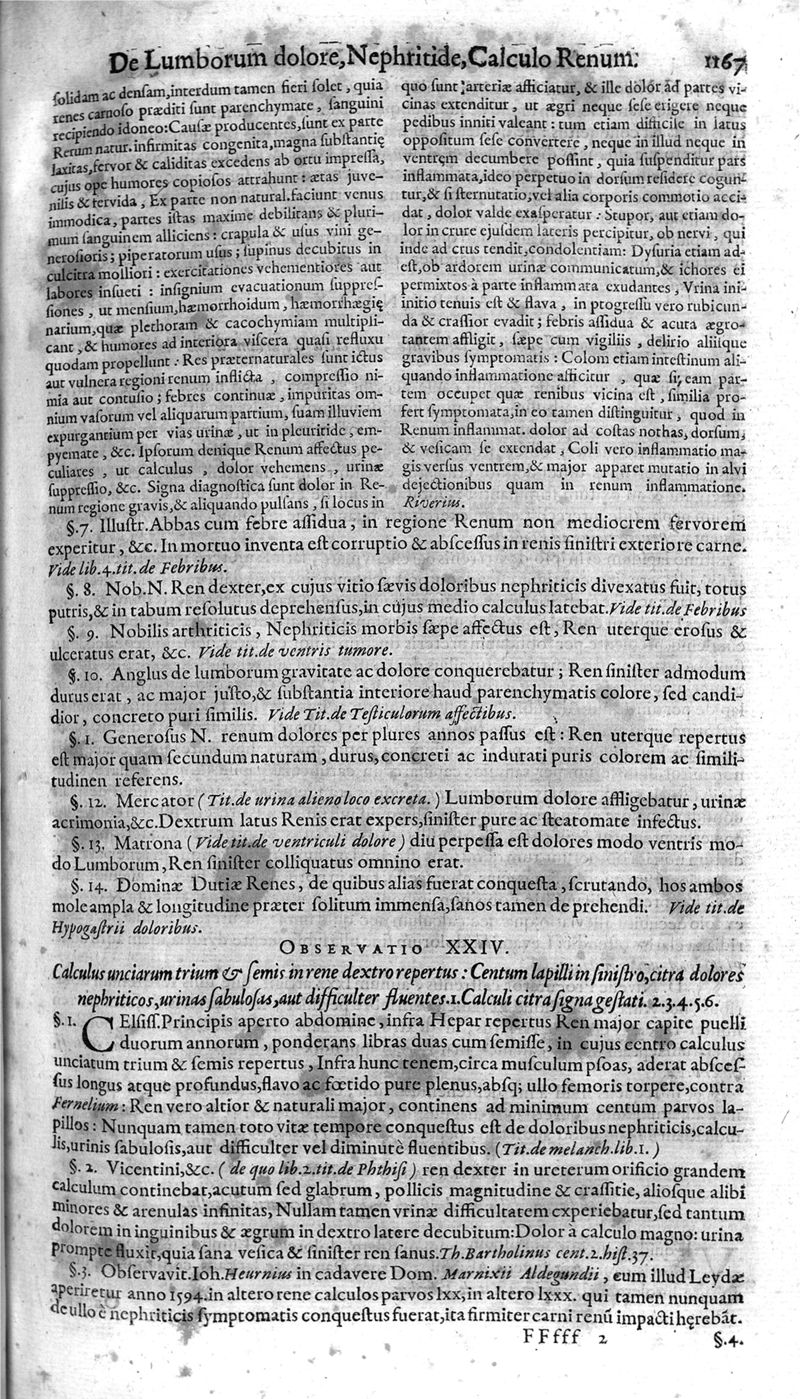 De Lumborum dolore, Nephritide, Calculo Renum. 1167
ſolidam ac denſam, interdum tamen fieri ſolet, quia
renes carnoſo præditi ſunt parenchymate, ſanguini
recipiendo idoneo: Cauſæ producentes, ſunt ex parte
Rerum natur. infirmitas congenita, magna ſubſtantię
laxitas, fervor & caliditas excedens ab ortu impreſſa,
cujus ope humores copioſos attrahunt: ætas juve-
nilis & fervida, Ex parte non natural. faciunt venus
immodica, partes iſtas maxime debilitans & pluri-
mum ſanguinem alliciens: crapula & uſus vini ge-
neroſioris; piperatorum uſus; ſupinus decubitus in
culcitra molliori: exercitationes vehementiores aut
labores inſueti: inſignium evacuationum ſuppreſ-
ſiones, ut menſium, hæmorrhoidum, hæmorrhagię
narium, quæ plethoram & cacochymiam multipli-
cant, & humores ad interiora viſcera quaſi refluxu
quodam propellunt: Res præternaturales ſunt ictus
aut vulnera regioni renum inflicta, compreſſio ni-
mia aut contuſio; febres continuæ, impuritas om-
nium vaſorum vel aliquarum partium, ſuam illuviem
expurgantium per vias urinæ, ut in pleuritide, em-
pyemate, &c. Ipſorum denique Renum affectus pe-
culiares, ut calculus, dolor vehemens, urinæ
ſuppreſſio, &c. Signa diagnoſtica ſunt dolor in Re-
num regione gravis, & aliquando pulſans, ſi locus in
quo ſunt arteriæ afficiatur, & ille dolor ad partes vi-
cinas extenditur, ut ægri neque ſeſe erigere neque
pedibus inniti valeant: tum etiam difficile in latus
oppoſitum ſeſe convertere, neque in illud neque in
ventrem decumbere poſſint, quia ſuſpenditur pars
inflammata, ideo perpetuo in dorſum reſidere cogun-
tur, & ſi ſternutatio, vel alia corporis commotio acci-
dat, dolor valde exaſperatur: Stupor, aut etiam do-
lor in crure ejuſdem lateris percipitur, ob nervi, qui
inde ad crus tendit, condolentiam: Dyſuria etiam ad-
eſt, ob ardorem urinæ communicatum, & ichores ei
permixtos à parte inflammata exudantes, Vrina ini-
initio tenuis eſt & flava, in progreſſu vero rubicun-
da & craſſior evadit; febris aſſidua & acuta ægro-
tantem affligit, ſæpe cum vigiliis, delirio aliiſque
gravibus ſymptomatis: Colom etiam inteſtinum ali-
quando inflammatione afficitur, quæ ſi eam par-
tem occupet quæ renibus vicina eſt, ſimilia pro-
fert ſymptomata, in eo tamen diſtinguitur, quod in
Renum inflammat. dolor ad coſtas nothas, dorſum,
& veſicam ſe extendat, Coli vero inflammatio ma-
gis verſus ventrem, & major apparet mutatio in alvi
dejectionibus quam in renum inflammatione.
Riverius.
§. 7. Illuſtr. Abbas cum febre aſſidua, in regione Renum non mediocrem fervorem
experitur, &c. In mortuo inventa eſt corruptio & abſceſſus in renis ſiniſtri exteriore carne.
Vide lib. 4. tit. de Febribus.
§. 8. Nob. N. Ren dexter, ex cujus vitio ſævis doloribus nephriticis divexatus fuit, totus
putris, & in tabum reſolutus deprehenſus, in cujus medio calculus latebat. Vide tit. de Febribus
§. 9. Nobilis arthriticis, Nephriticis morbis ſæpe affectus eſt, Ren uterque eroſus &
ulceratus erat, &c. Vide tit. de ventris tumore.
§. 10. Anglus de lumborum gravitate ac dolore conquerebatur; Ren ſiniſter admodum
durus erat, ac major juſto, & ſubſtantia interiore haud parenchymatis colore, ſed candi-
dior, concreto puri ſimilis. Vide Tit. de Teſticulorum affectibus.
§. 1. Generoſus N. renum dolores per plures annos paſſus eſt: Ren uterque repertus
eſt major quam ſecundum naturam, durus, concreti ac indurati puris colorem ac ſimili-
tudinen referens.
§. 12. Mercator (Tit. de urina alieno loco excreta.) Lumborum dolore affligebatur, urinæ
acrimonia, &c. Dextrum latus Renis erat expers, ſiniſter pure ac ſteatomate infectus.
§. 13. Matrona (Vide tit. de ventriculi dolore) diu perpeſſa eſt dolores modo ventris mo-
do Lumborum, Ren ſiniſter colliquatus omnino erat.
§. 14. Dominæ Dutiæ Renes, de quibus alias fuerat conqueſta, ſcrutando, hos ambos
mole ampla & longitudine præter ſolitum immenſa, ſanos tamen deprehendi. Vide tit. de
Hypogaſtrii doloribus.
OBSERVATIO XXIV.
Calculus unciarum trium & ſemis in rene dextro repertus: Centum lapilli in ſiniſtro, citra dolores
nephriticos, urinas ſabuloſas, aut difficulter fluentes. 1. Calculi citra ſigna geſtati. 2. 3. 4. 5. 6.
§. 1. CElſiſſ. Principis aperto abdomine, infra Hepar repertus Ren major capite puelli
duorum annorum, ponderans libras duas cum ſemiſſe, in cujus centro calculus
unciatum trium & ſemis repertus, Infra hunc renem, circa muſculum pſoas, aderat abſceſ-
ſus longus atque profundus, flavo ac fœtido pure plenus, abſq; ullo femoris torpere, contra
Fernelium: Ren vero altior & naturali major, continens ad minimum centum parvos la-
pillos: Nunquam tamen toto vitæ tempore conqueſtus eſt de doloribus nephriticis, calcu-
lis, urinis ſabuloſis, aut difficulter vel diminutè fluentibus. (Tit. de melanch. lib. 1.)
§. 2. Vicentini, &c. (de quo lib. 2. tit. de Phthiſi) ren dexter in ureterum orificio grandem
calculum continebat, acutum ſed glabrum, pollicis magnitudine & craſſitie, alioſque alibi
minores & arenulas infinitas, Nullam tamen vrinæ difficultatem experiebatur, ſed tantum
dolorem in inguinibus & ægrum in dextro latere decubitum: Dolor à calculo magno: urina
prompte fluxit, quia ſana veſica & ſiniſter ren ſanus. Th. Bartholinus cent. 2. hiſt. 37.
§. 3. Obſervavit. Ioh. Heurnius in cadavere Dom. Marnixii Aldegundii, cum illud Leydæ
aperiretur anno 1594. in altero rene calculos parvos lxx, in altero lxxx. qui tamen nunquam
de ullo è nephriticis ſymptomatis conqueſtus fuerat, ita firmiter carni renū impacti hęrebāt.
FFfff 2 §. 4.